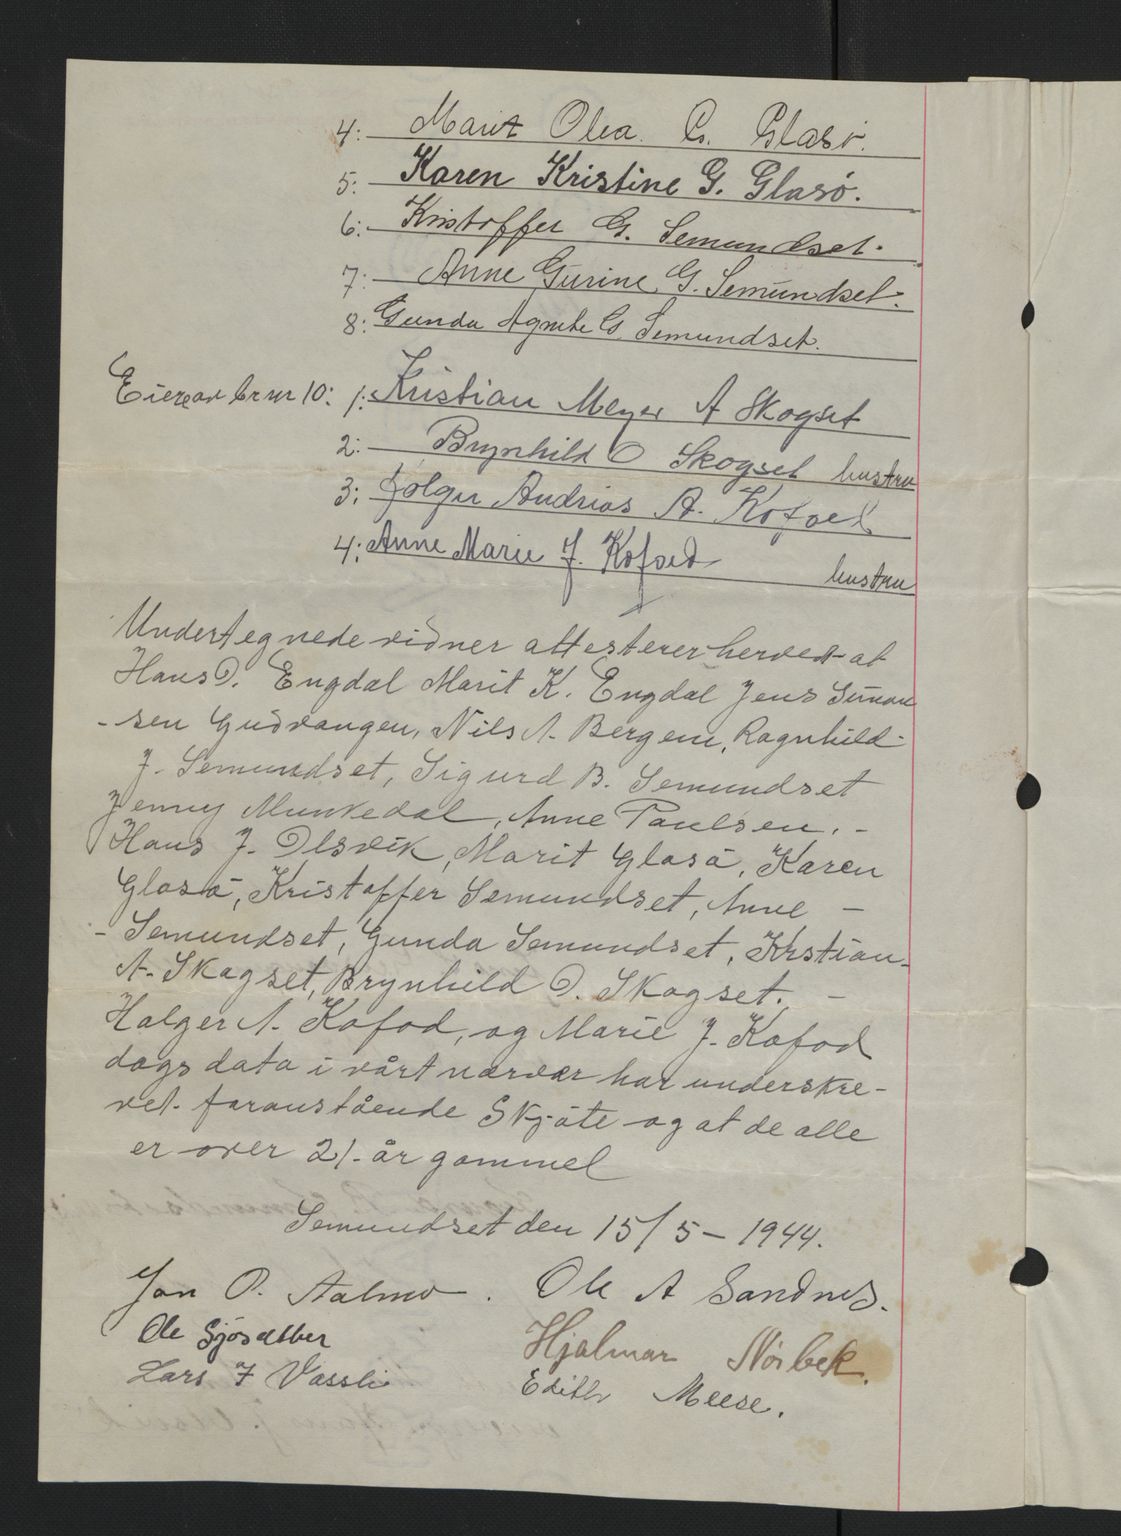 4: Marit Olea. G. Glasø.
5: Karen Kristine G. Glasø.
6: Kristoffer G. Semundset.
7: Anne Gurine G. Semundset.
8: Gunda Agnete G. Semundset.
Eiere av br nr 10: 1: Kristian Meyer A Skogset
2: Brynhild O Skogset hustru
3: Holger Andrias A. Kofoed
4: Anne Marie J. Kofoed hustru
Undertegnede vidner attesterer herved at
Hans O. Engdal Marit K. Engdal Jens Simon
- sen Gudvangen, Nils A. Bergem, Ragnhild
J. Semundset, Sigurd B. Semundset
Jenny Munkedal, Anne Paulsen. -
Hans J. Olsvik, Marit Glasö, Karen
Glasö, Kristoffer Semundset, Anne -
- Semundset, Gunda Semundset, Krstian
A. Skogset, Brynhild O. Skogset. -
Holger A. Kofod, og Marie J. Kofod
dags dato i vårt nærvær har underskre-
vet foranstående Skjöte og at de alle
er over 21 år gammel
Semundset den 15/5 - 1944.
Jon O. Aalmo. Ole A Sandnes.
Ole Sjösæther Hjalmar Nörbek.
Lars J Vassli Edith Meese.